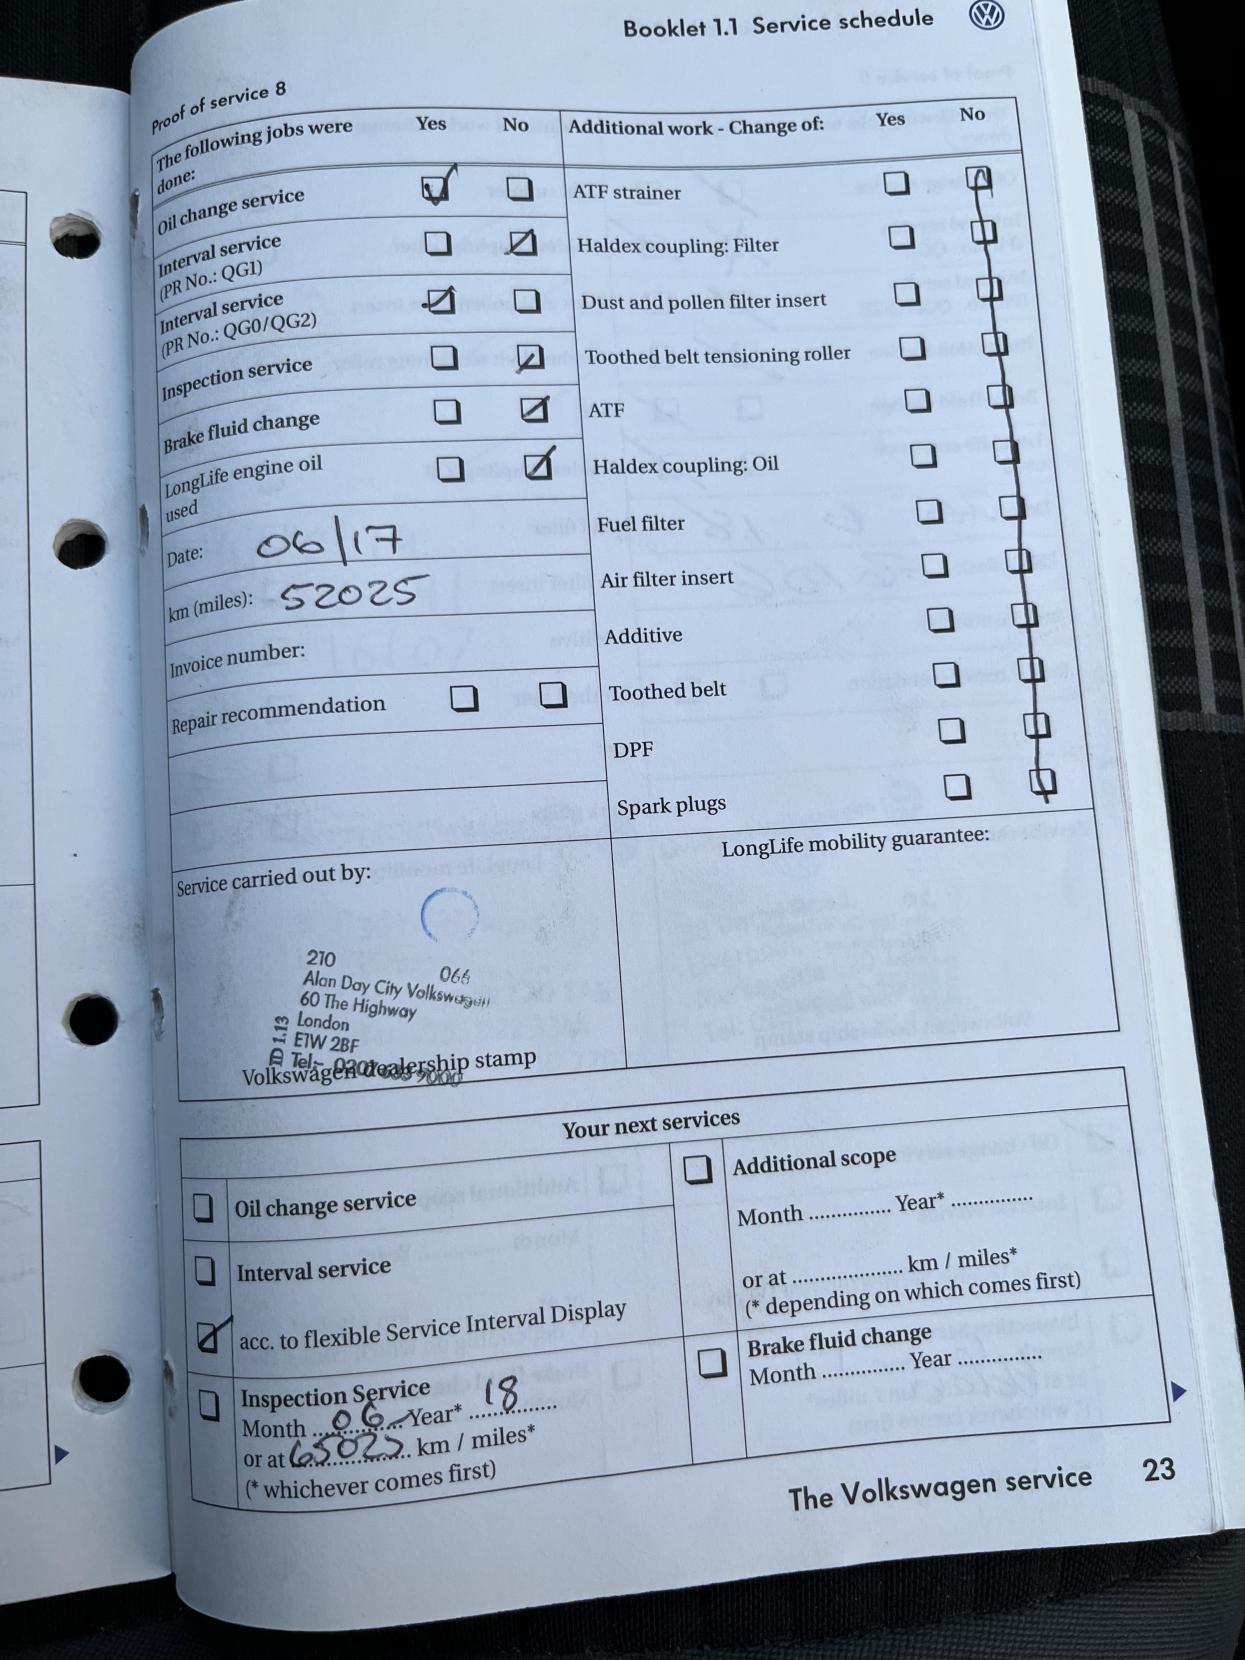 Booklet 1.1 Service schedule
Proof of service 8
The following jobs were done: Yes No
Oil change service
Interval service
(PR No.: QG1)
Interval service
(PR No.: QG0/QG2)
Inspection service
Brake fluid change
LongLife engine oil
used
Date: 06/17
km (miles): 52025
Invoice number:
Repair recommendation
Additional work - Change of: Yes No
ATF strainer
Haldex coupling: Filter
Dust and pollen filter insert
Toothed belt tensioning roller
ATF
Haldex coupling: Oil
Fuel filter
Air filter insert
Additive
Toothed belt
DPF
Spark plugs
Service carried out by:
210 066
Alan Day City Volkswagen
60 The Highway
London
E1W 2BF
Tel:-
ID 1.13
Volkswagen dealership stamp
LongLife mobility guarantee:
Your next services
Oil change service
Interval service
acc. to flexible Service Interval Display
Inspection Service
Month 06 Year* 18
or at 65025 km / miles*
(* whichever comes first)
Additional scope
Month .............. Year* ..............
or at ................... km / miles*
(* depending on which comes first)
Brake fluid change
Month .............. Year ..............
The Volkswagen service 23